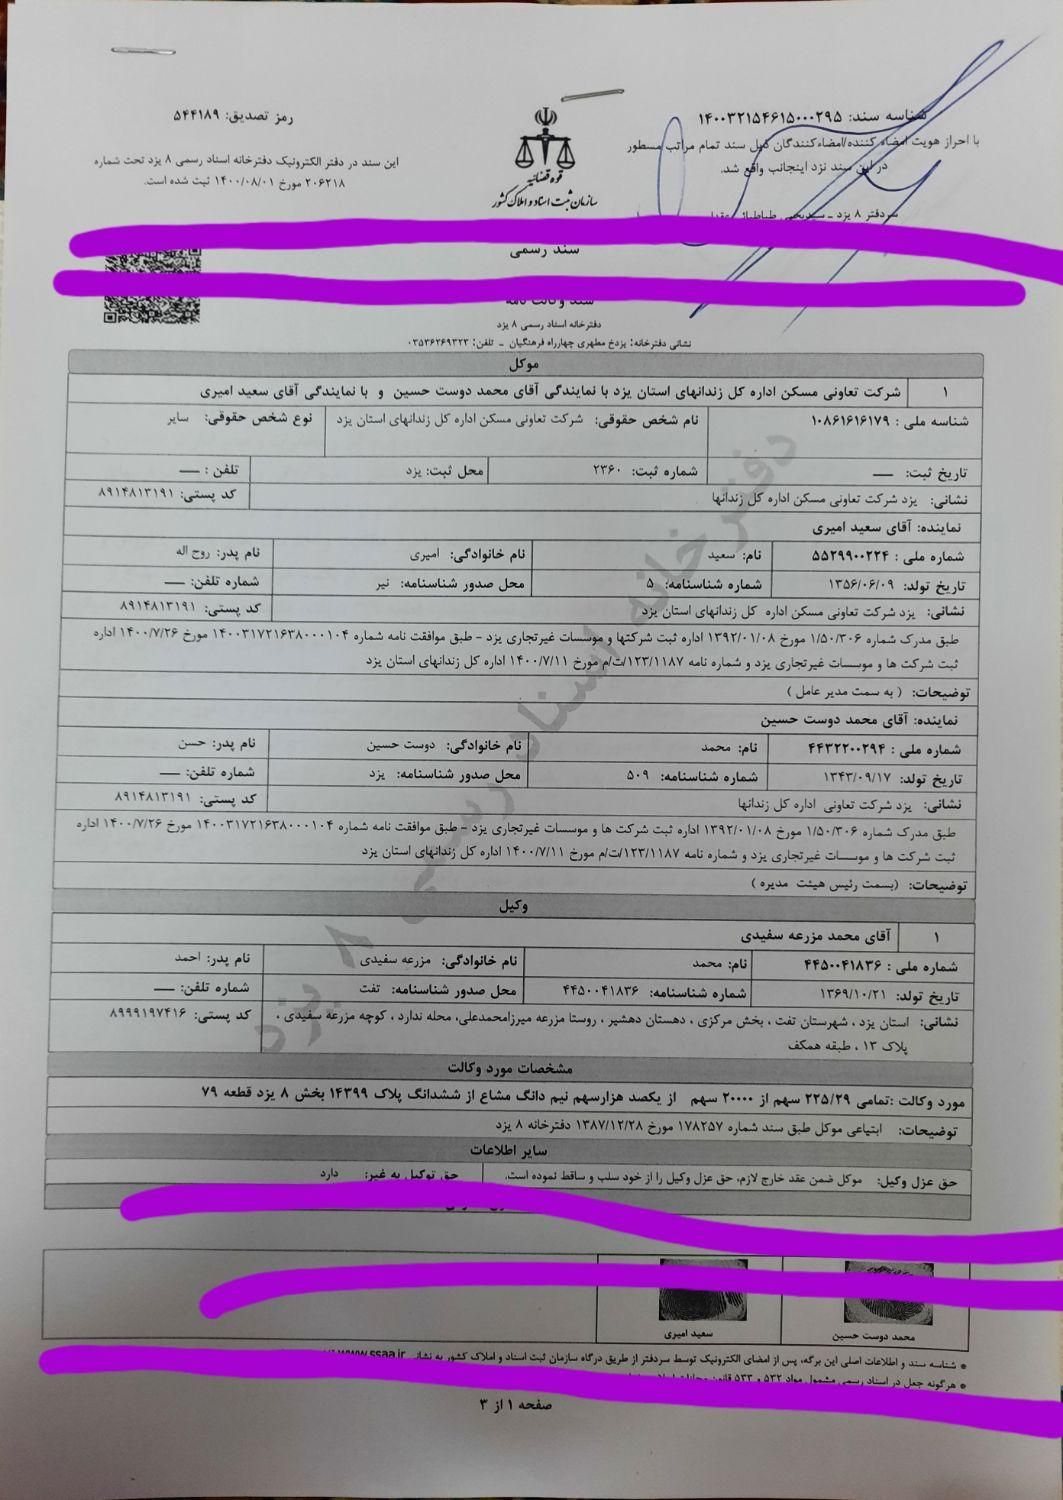 شناسه سند: ۱۴۰۰۳۲۱۵۴۶۱۵۰۰۰۲۹۵
رمز تصدیق: ۵۴۴۱۸۹
با احراز هویت امضاء کننده/امضاءکنندگان ذیل سند تمام مراتب مسطور
در این سند نزد اینجانب واقع شد.
سردفتر ۸ یزد - سیدیحیی طباطبائی
قوه قضائیه
سازمان ثبت اسناد و املاک کشور
این سند در دفتر الکترونیک دفترخانه اسناد رسمی ۸ یزد تحت شماره
۲۰۶۲۱۸ مورخ ۱۴۰۰/۰۸/۰۱ ثبت شده است.
سند رسمی
سند وکالت نامه
دفترخانه اسناد رسمی ۸ یزد
نشانی دفترخانه: یزدخ مطهری چهارراه فرهنگیان - تلفن: ۰۳۵۳۶۲۶۹۳۲۳
موکل
۱ شرکت تعاونی مسکن اداره کل زندانهای استان یزد با نمایندگی آقای محمد دوست حسین و با نمایندگی آقای سعید امیری
شناسه ملی : ۱۰۸۶۱۶۱۶۱۷۹ نام شخص حقوقی: شرکت تعاونی مسکن اداره کل زندانهای استان یزد نوع شخص حقوقی: سایر
تاریخ ثبت: — شماره ثبت: ۲۳۶۰ محل ثبت: یزد تلفن : —
نشانی: یزد شرکت تعاونی مسکن اداره کل زندانها کد پستی: ۸۹۱۴۸۱۳۱۹۱
نماینده: آقای سعید امیری
شماره ملی : ۵۵۲۹۹۰۰۲۲۴ نام: سعید نام خانوادگی: امیری نام پدر: روح اله
تاریخ تولد: ۱۳۵۶/۰۶/۰۹ شماره شناسنامه: ۵ محل صدور شناسنامه: نیر شماره تلفن: —
نشانی: یزد شرکت تعاونی مسکن اداره کل زندانهای استان یزد کد پستی: ۸۹۱۴۸۱۳۱۹۱
طبق مدرک شماره ۱/۵۰/۳۰۶ مورخ ۱۳۹۲/۰۱/۰۸ اداره ثبت شرکتها و موسسات غیرتجاری یزد - طبق موافقت نامه شماره ۱۴۰۰۳۱۷۲۱۶۳۸۰۰۰۱۰۴ مورخ ۱۴۰۰/۷/۲۶ اداره
ثبت شرکت ها و موسسات غیرتجاری یزد و شماره نامه ۱۲۳/۱۱۸۷/ت/م مورخ ۱۴۰۰/۷/۱۱ اداره کل زندانهای استان یزد
توضیحات: ( به سمت مدیر عامل )
نماینده: آقای محمد دوست حسین
شماره ملی : ۴۴۳۲۲۰۰۲۹۴ نام: محمد نام خانوادگی: دوست حسین نام پدر: حسن
تاریخ تولد: ۱۳۴۳/۰۹/۱۷ شماره شناسنامه: ۵۰۹ محل صدور شناسنامه: یزد شماره تلفن: —
نشانی: یزد شرکت تعاونی اداره کل زندانها کد پستی: ۸۹۱۴۸۱۳۱۹۱
طبق مدرک شماره ۱/۵۰/۳۰۶ مورخ ۱۳۹۲/۰۱/۰۸ اداره ثبت شرکت ها و موسسات غیرتجاری یزد - طبق موافقت نامه شماره ۱۴۰۰۳۱۷۲۱۶۳۸۰۰۰۱۰۴ مورخ ۱۴۰۰/۷/۲۶ اداره
ثبت شرکت ها و موسسات غیرتجاری یزد و شماره نامه ۱۲۳/۱۱۸۷/ت/م مورخ ۱۴۰۰/۷/۱۱ اداره کل زندانهای استان یزد
توضیحات: (بسمت رئیس هیئت مدیره )
وکیل
۱ آقای محمد مزرعه سفیدی
شماره ملی : ۴۴۵۰۰۴۱۸۳۶ نام: محمد نام خانوادگی: مزرعه سفیدی نام پدر: احمد
تاریخ تولد: ۱۳۶۹/۱۰/۲۱ شماره شناسنامه: ۴۴۵۰۰۴۱۸۳۶ محل صدور شناسنامه: تفت شماره تلفن: —
نشانی: استان یزد ، شهرستان تفت ، بخش مرکزی ، دهستان دهشیر ، روستا مزرعه میرزامحمدعلی، محله ندارد ، کوچه مزرعه سفیدی ، کد پستی: ۸۹۹۹۱۹۷۴۱۶
پلاک ۱۳ ، طبقه همکف
مشخصات مورد وکالت
مورد وکالت :تمامی ۲۲۵/۲۹ سهم از ۲۰۰۰۰ سهم از یکصد هزارسهم نیم دانگ مشاع از ششدانگ پلاک ۱۴۳۹۹ بخش ۸ یزد قطعه ۷۹
توضیحات: ابتیاعی موکل طبق سند شماره ۱۷۸۲۵۷ مورخ ۱۳۸۷/۱۲/۲۸ دفترخانه ۸ یزد
سایر اطلاعات
حق عزل وکیل: موکل ضمن عقد خارج لازم، حق عزل وکیل را از خود سلب و ساقط نموده است. حق توکیل به غیر: دارد
محمد دوست حسین سعید امیری
* شناسه سند و اطلاعات اصلی این برگه، پس از امضای الکترونیک توسط سردفتر از طریق درگاه سازمان ثبت اسناد و املاک کشور به نشانی www.ssaa.ir
* هرگونه جعل در اسناد رسمی مشمول مواد ۵۳۲ و ۵۳۳ قانون مجازات
صفحه ۱ از ۳
دفترخانه اسناد رسمی ۸ یزد